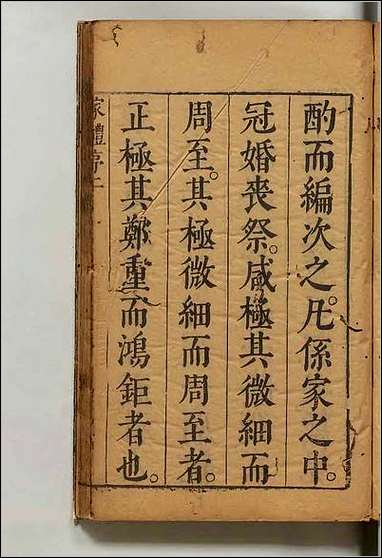 酌而編次之。凡係家之中。
冠婚喪祭。咸極其微細而
周至。其極微細而周至者。
正極其鄭重而鴻鉅者也。
家禮序二